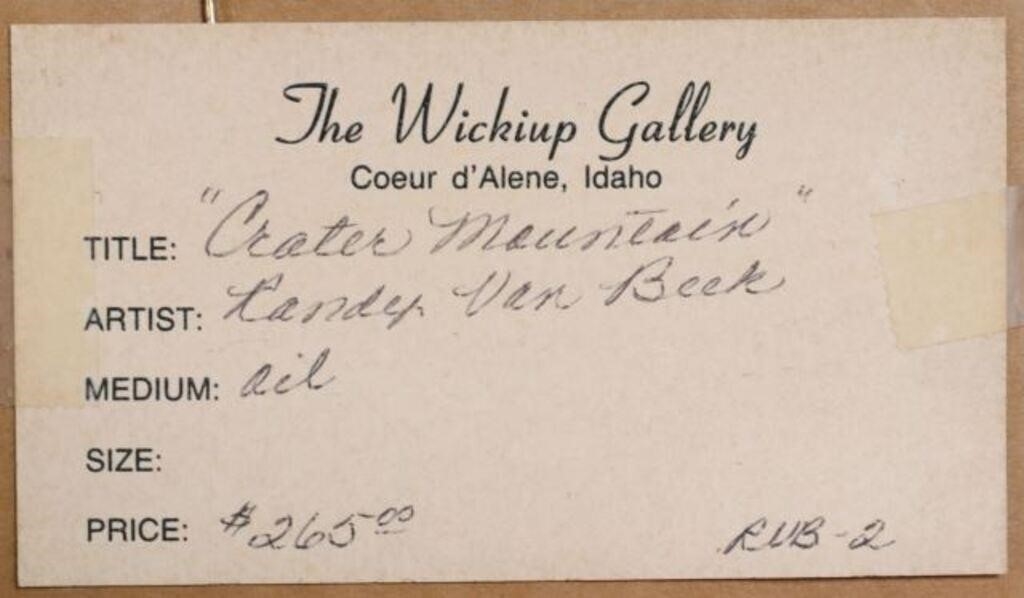 The Wickiup Gallery
Coeur d'Alene, Idaho
TITLE: "Crater Mountain"
ARTIST: Randy Van Beek
MEDIUM: Oil
SIZE:
PRICE: $265.00
RVB-2